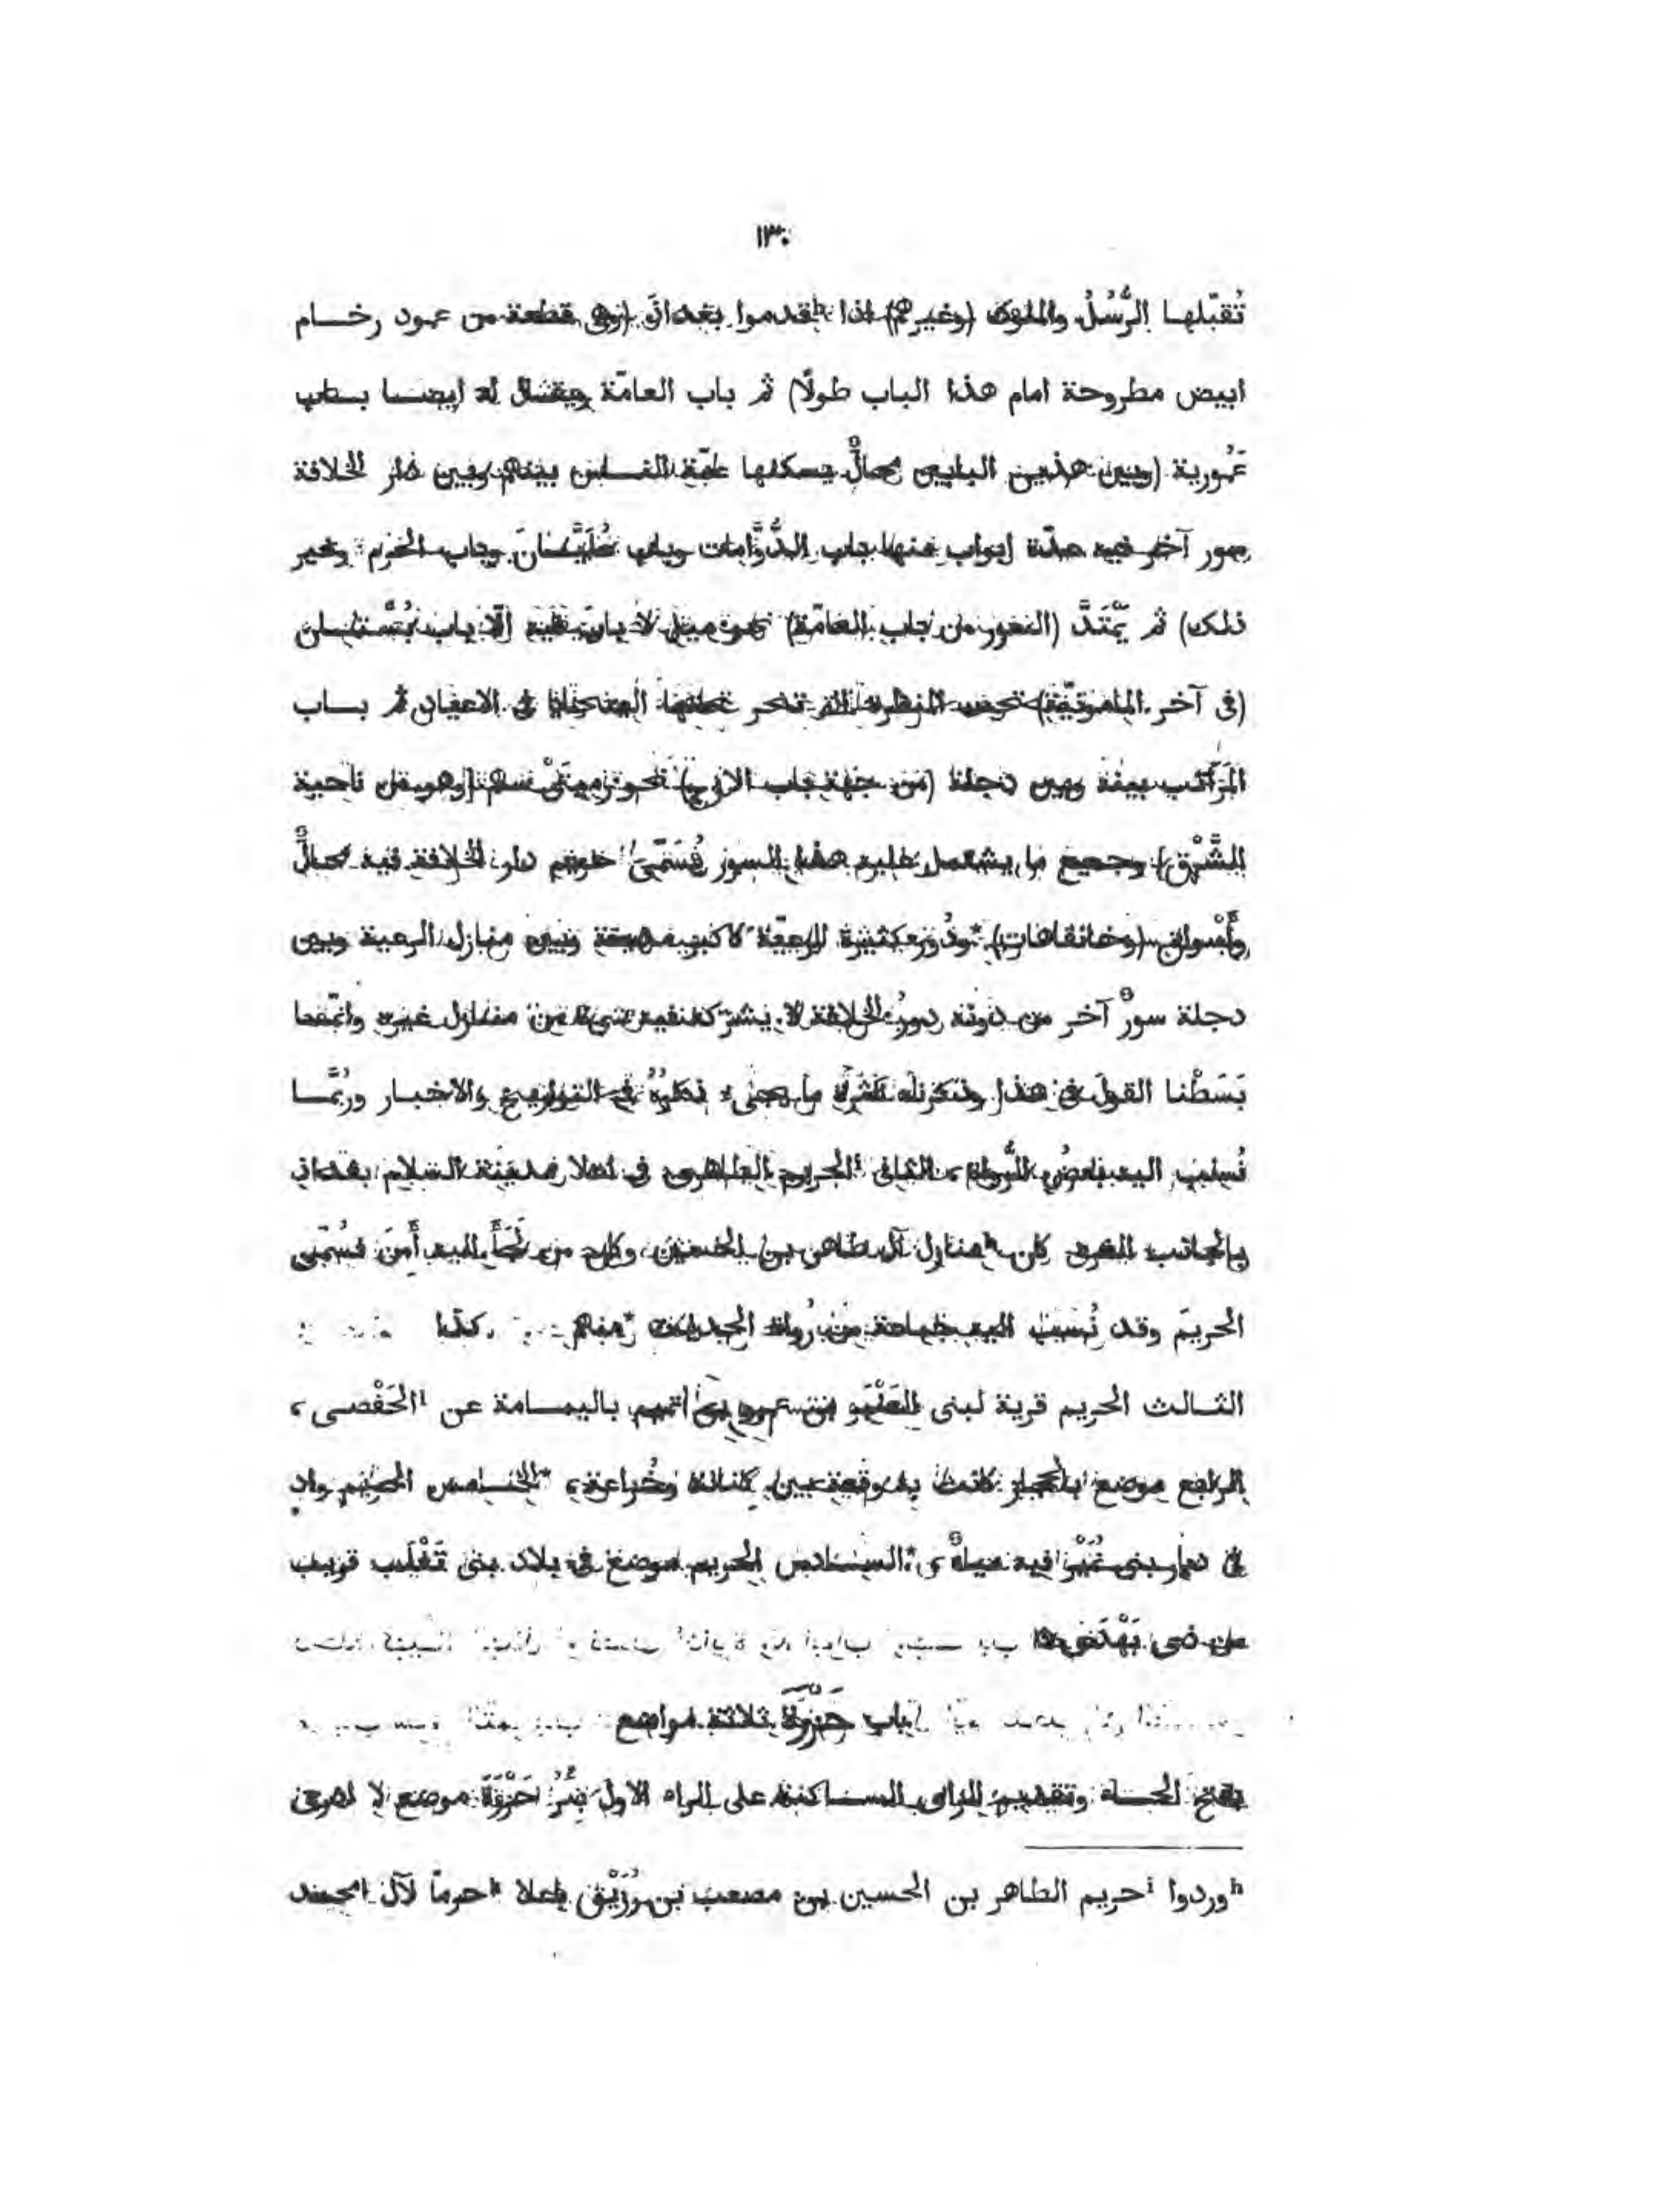 ١٣٠
تُقبّلها الرُّسُلُ والملوك (وغيرهم) اذا ʰقدموا بغداذَ (وهى قطعة من عمود رخام
ابيض مطروحة امام هذا الباب طولًا) ثم باب العامّة ويقال له ايضا باب
عَمُّورية (وبين هذين البابين محالٌّ يسكنها عامّة الناس بينهم وبين دار الخلافة
سور آخر فيه عدّة ابواب منها باب الدُّوَّامات وباب عُلَيَّانَ وباب الحرم وغير
ذلك) ثم يَمْتَدّ (السور من باب العامّة) نحو ميل لا باب فيه الّا باب بُسْتان
(فى آخر المامونيّة) تحت المنظرة التى تنحر تحتها الضحايا فى الاعياد ثم باب
المَرَاتب بينه وبين دجلة (من جهة باب الازج) نحو رميتَىْ سهم (وهو من ناحية
الشَّرْق) وجميع ما يشتمل عليه هذا السور يُسَمّى حريم دار الخلافة فيه محالٌّ
وأَسْواق (وخانقاهات) *ودُور كثيرة للرعيّة وبين منازل الرعية وبين
دجلة سورٌ آخر من دونه دورُ الخلافة لا يشركه فيه شىء من منازل غيره وانّما
بَسَطْنا القولَ فى هذا وذكرناه لكثرة ما يجىء ذكرُهُ فى التواريخ والاخبار ورُبَّما
نُسب اليه بعضُ الرُّواة، الثانى ⁱالحريم الطاهرى فى اعلا مدينة السلام بغداد
بالجانب الغربى كان ᵏمنازل آل طاهر بن الحسين وكان من لَجَأَ اليه أَمِنَ فسُمّى
الحريمَ وقد نُسِبَ اليه جماعة من رُواة الحديث *منهم كذا
الثالث الحريم قرية لبنى العَنْبَر بن عمرو بن تميم باليمامة عن ˡالحَفْصى،
الرابع موضع بالحجاز كانت به وقعة بين كنانة وخُزاعة، *الخامس الحريم واد
فى ديار بنى نُمَيْر فيه مياهٌ، *السادس الحريم موضع فى بلاد بنى تَغْلَب قريب
من ذى بَهْدَى
باب حَزْرَةَ ثلاثة مواضع
بفتح الحاء وتقديم الزاى الساكنة على الراء الاول بِئْرُ حَزْرَةَ موضع لا اعرفه
ʰوردوا ⁱحريم الطاهر بن الحسين بن مصعب بن رُزَيْق باعلا ᵏحرمًا لآل ˡمحمد